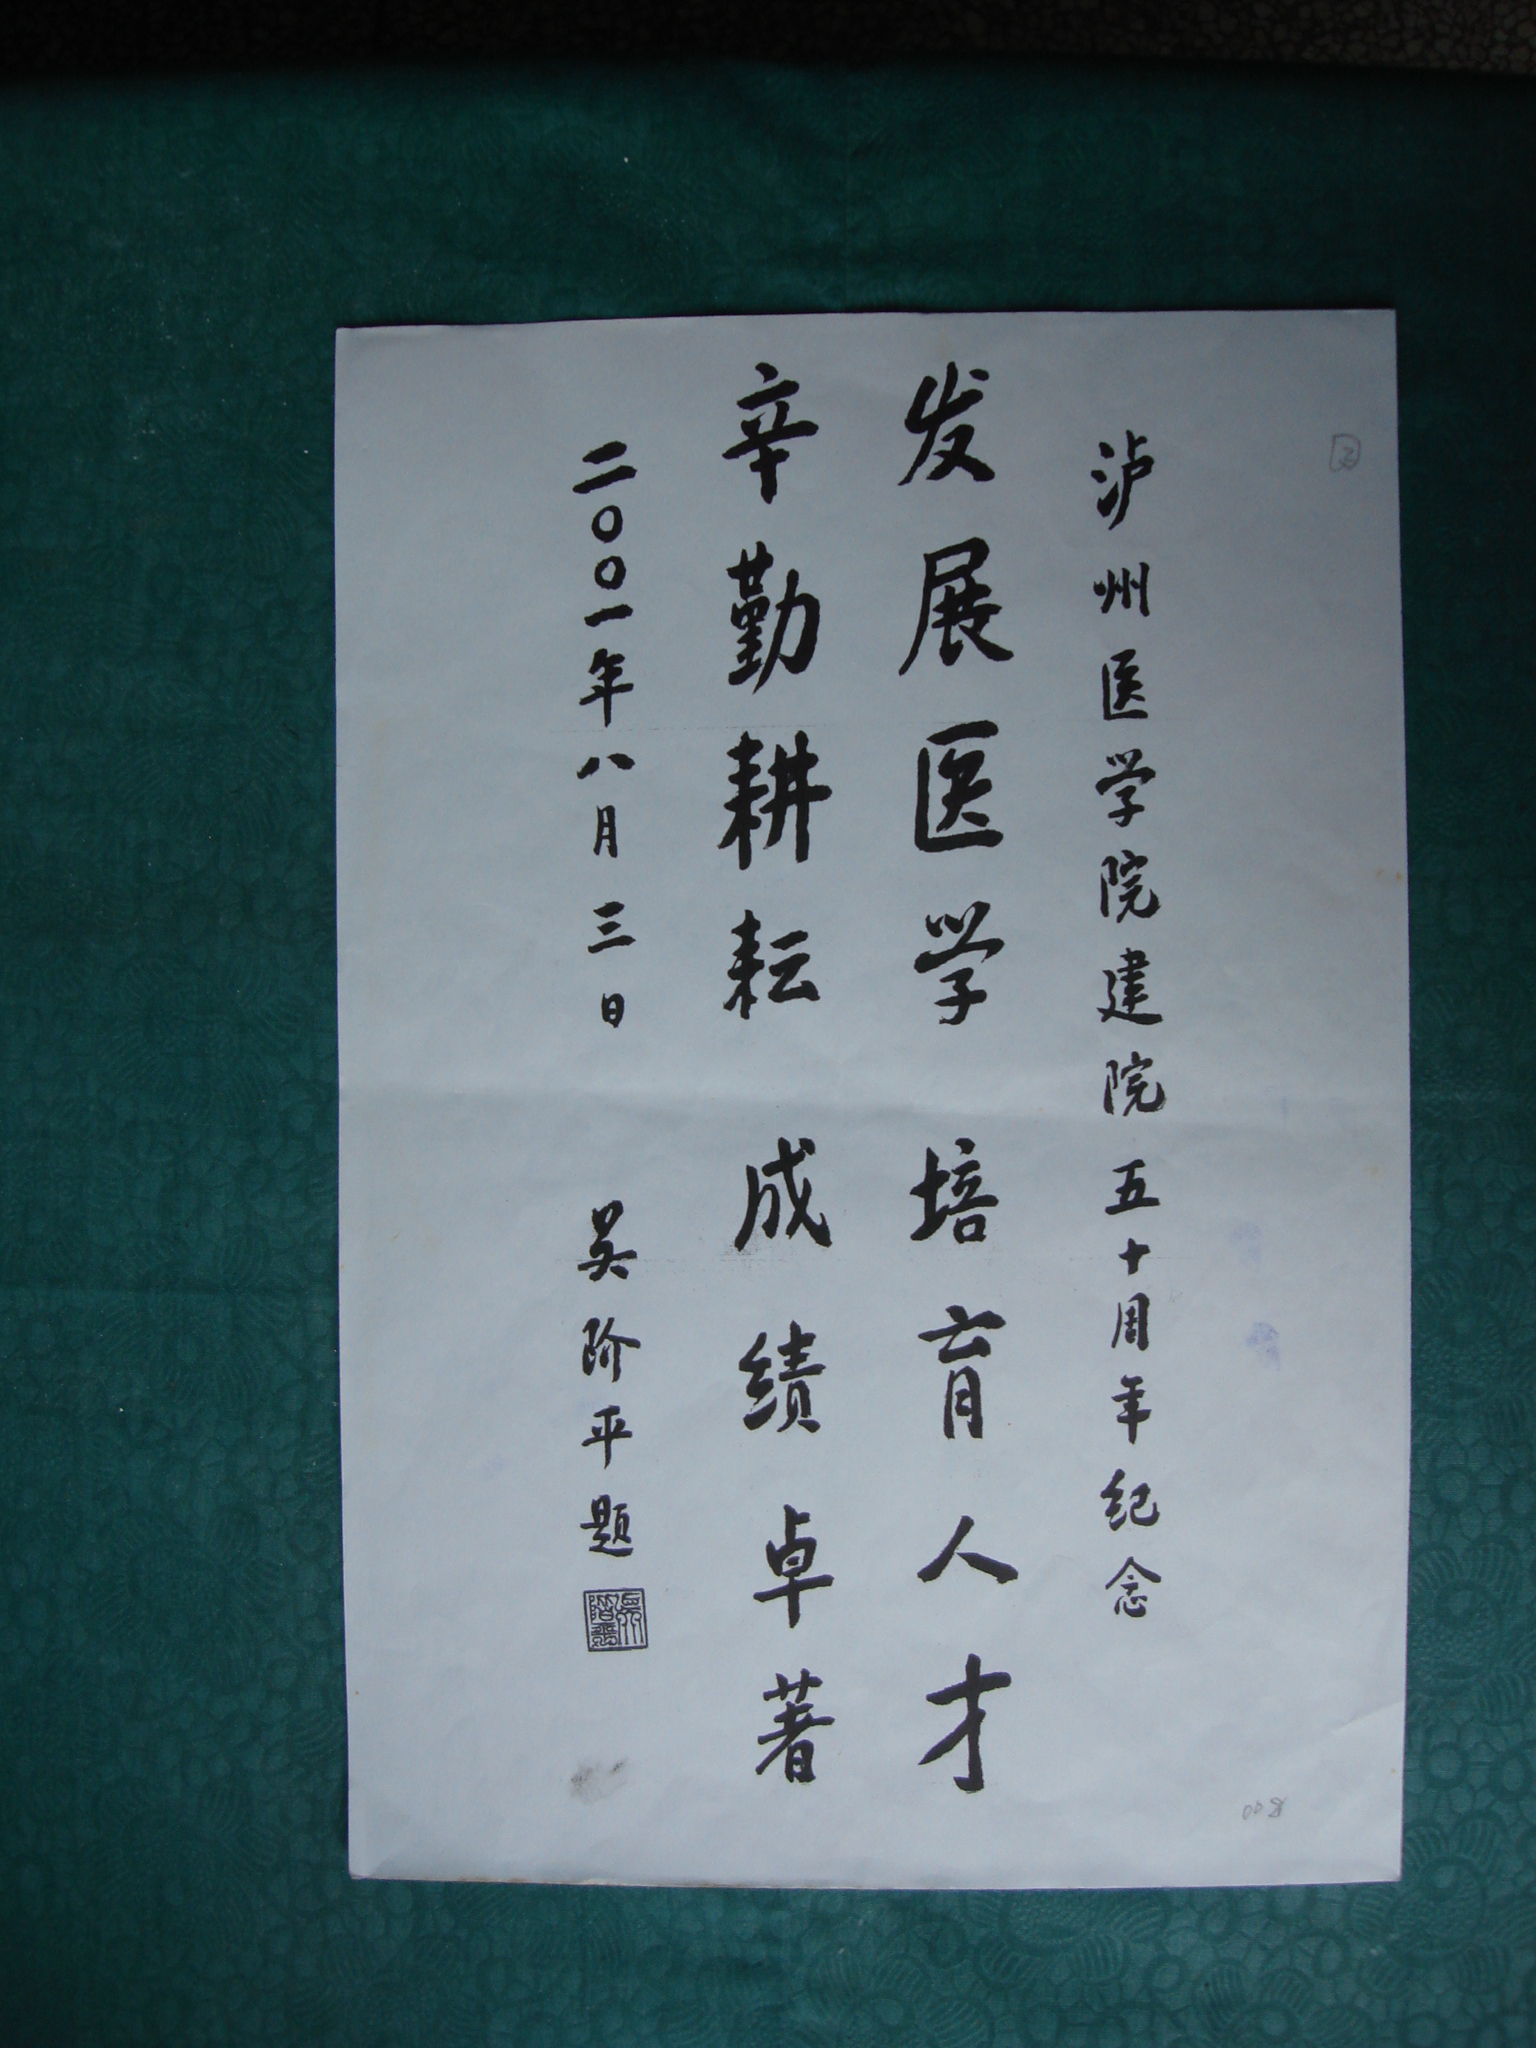 泸州医学院建院五十周年纪念
发展医学 培育人才
辛勤耕耘 成绩卓著
二〇〇一年八月三日 吴阶平题